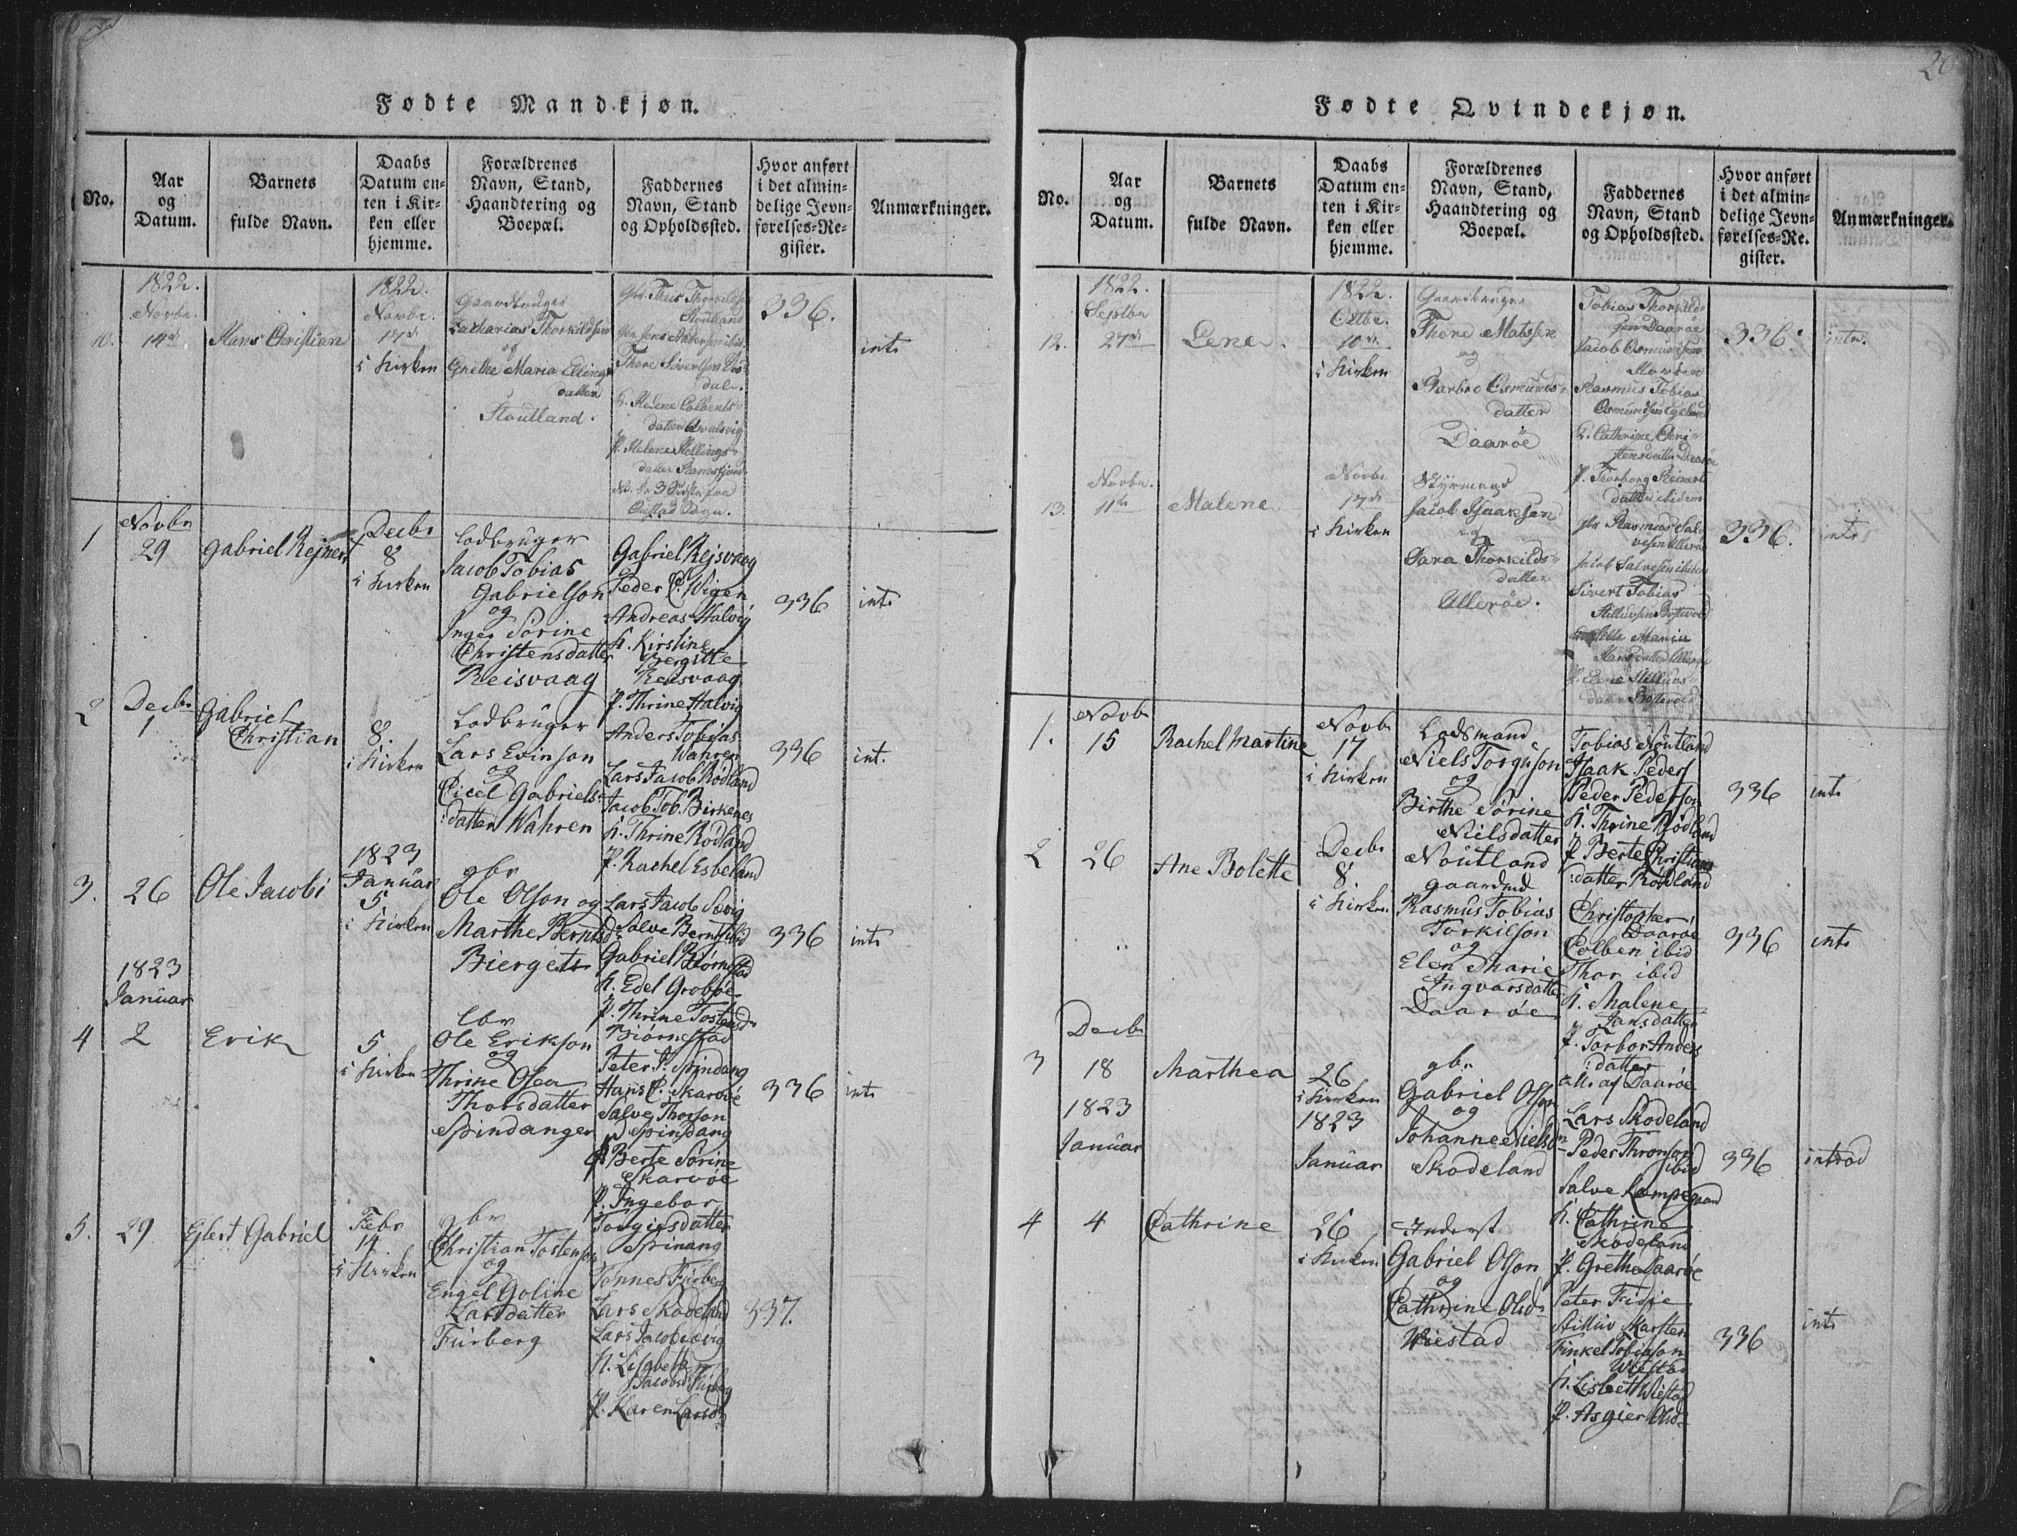 Fødte Mandkjøn.
No.
Aar
og
Datum.
Barnets
fulde Navn.
Daabs
Datum en-
ten i Kir-
ken eller
hjemme.
Forældrenes
Navn, Stand,
Haandtering og
Boepæl.
Faddernes
Navn, Stand
og Opholdssted.
Hvor anført
i det almin-
delige Jevn-
førelses-Re-
gister.
Anmærkninger.
10.
1822.
Novbr.
14de
Hans Christian
1822.
Novbr.
17de
i Kirken
Gaardbruger
Zacharias Thorkildsen
og
Grethe Maria Ellings
datter
Stoutland.
Gbr. Theis Thorkildsen
Stoutland
Thore Sivertsen
K. Helene Colbents
datter
P. Helene Hellings
datter Ramsfjord
336.
int:
1
Novbr
29
Gabriel Rejnert
Decbr
8
i Kirken
Lodbruger
Jacob Tobias
Gabrielson
og
Inger Sørine
Christensdatter
Reisvaag
Gabriel Rejsvaag
Peder C. Wigen
Andreas Halvig
K. Kirstine
Bergitte
Reisvaag
P. Thrine Halvig
336
int:
2
Decbr
1
Gabriel
Christian
8.
i Kirken
Lodbruger
Lars Evinson
og
Cicel Gabriels-
:datter Wahren
Anders Tobias
Wahren
Lars Jacob Rødland
Jacob Tob. Birkenes
K. Thrine Rødland
P. Rachel Esbeland
336
int.
3.
26
Ole Jacobi
1823
Januar
5
i Kirken
gbr
Ole Olson og
Marthe Berntsd:
Biergets
Lars Jacob Sævig
Salve Berntsd ibid
Gabriel Biørnstad
K. Edel Grobøe
P. Thrine Tostensd:
Biørnestad
336
int:
1823
Januar
4
2
Erik
5
i Kirken
lbr
Ole Erikson
og
Thrine Olea
Thorsdatter
Spindanger
Peter J. Spindang
Hans C. Skarvøe
Salve Thorson
Spindang
K Berte Sørine
Skarvøe
P. Ingebor
Torgiersdatter
Spinang
336
int:
5.
29
Eilert Gabriel
Febr
14
i Kirken
gbr
Christian Tostenson
og
Engel Goline
Larsdatter
Furberg
Tønnes Furberg
Lars Skodeland
Lars Jacob Sævig
K. Lisabeth
Jacobsd: Furberg
P. Karen Larsd:
337.
Fødte Qvindekjøn.
20
No.
Aar
og
Datum.
Barnets
fulde Navn.
Daabs
Datum en-
ten i Kir-
ken eller
hjemme.
Forældrenes
Navn, Stand,
Haandtering og
Boepæl.
Faddernes
Navn, Stand
og Opholdssted.
Hvor anført
i det almin-
delige Jevn-
førelses-Re-
gister.
Anmærkninger.
12.
1822.
Septbr
27de
Lene.
1822.
Octbr.
10de
i Kirken
Gaardbruger
Thore Matssen
og
Barbro Osmunds-
datter
Daarøe
Tobias Thorkild-
sen Daarøe
Jacob Osmundsen
Rasmus Tobias
Osmundsen Egeland
K. Cathrine Chri-
stensdatter Daarøe
P. Thorborg Reinerts
datter ibidem
336.
intr.
13.
Novbr.
11te
Malene
Novbr
17de
i Kirken
Styrmand
Jacob Isaaksen
og
Sara Thorkilds-
datter
Ullerøe.
gbr Rasmus Sal-
vesen Ullerøe
Jacob Salvesen ibidem
Sivert Tobias
336.
int:
1.
Novb
15
Rachel Martine
Novb
17
i Kirken
Lodsmand
Niels Torgusson
og
Birthe Sørine
Nielsdatter
Noutland
Tobias Noutland
Isaak Peders
Peder Pederson
K. Thrine Rødland
P. Berte Christians
:datter Rødland
336
int:
2
26
Ane Bolette
Decbr
8
i Kirken
gaardmd
Rasmus Tobias
Torkilson
og
Elen Marie
Ingvarsdatter
Daarøe
Christopher
Daarøe
Colben ibid
Thor ibid
K. Malene
Jansdatter
P. Torbor Anders
:datter
alle af Daarøe
336
int:
3
Decbr
18
Marthea
26
i Kirken
gbr
Gabriel Olson
og
Johanne Nielsd
Skodeland
Lars Skodeland
Peder Thromson
ibid
Salve Kampegaard
K. Cathrine
Skodeland
P. Grethe Daarøe
336
introd
1823
Januar
4
4
Cathrine
1823
Januar
26
i Kirken
Inderst
Gabriel Olson
og
Cathrine Olsd:
Wiestad
Peter Fidje
Stillüv Karsten
Finkel Tobiason
Wiestad
K. Lisbeth Wiestad
P. Asgier Olsd:
336
int: